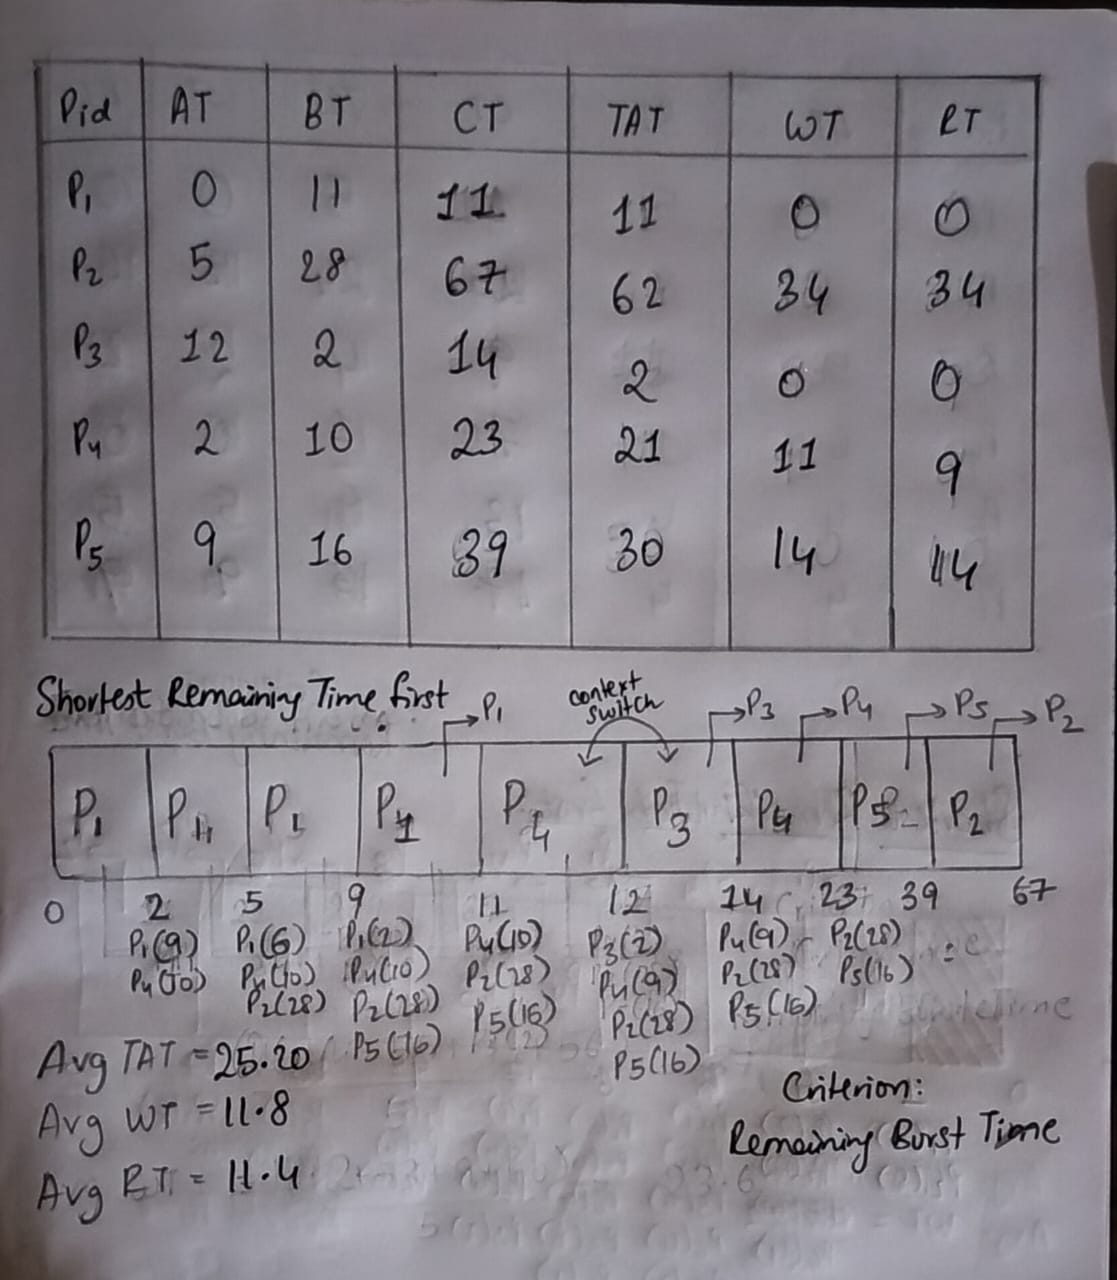 Pid AT BT CT TAT WT RT
P1 0 11 11 11 0 0
P2 5 28 67 62 34 34
P3 12 2 14 2 0 0
P4 2 10 23 21 11 9
P5 9 16 39 30 14 14
Shortest Remaining Time first
context switch
P1 P3 P4 P5 P2
P1 P4 P1 P1 P4 P3 P4 P5 P2
0 2 5 9 11 12 14 23 39 67
P1(9) P1(6) P1(2) P4(10) P3(2) P4(9) P2(28)
P4(10) P4(10) P4(10) P2(28) P4(9) P2(28) P5(16)
P2(28) P2(28) P5(16) P2(28) P5(16)
P5(16) P5(16)
Avg TAT = 25.20
Avg WT = 11.8
Avg RT = 11.4
Criterion:
Remaining Burst Time